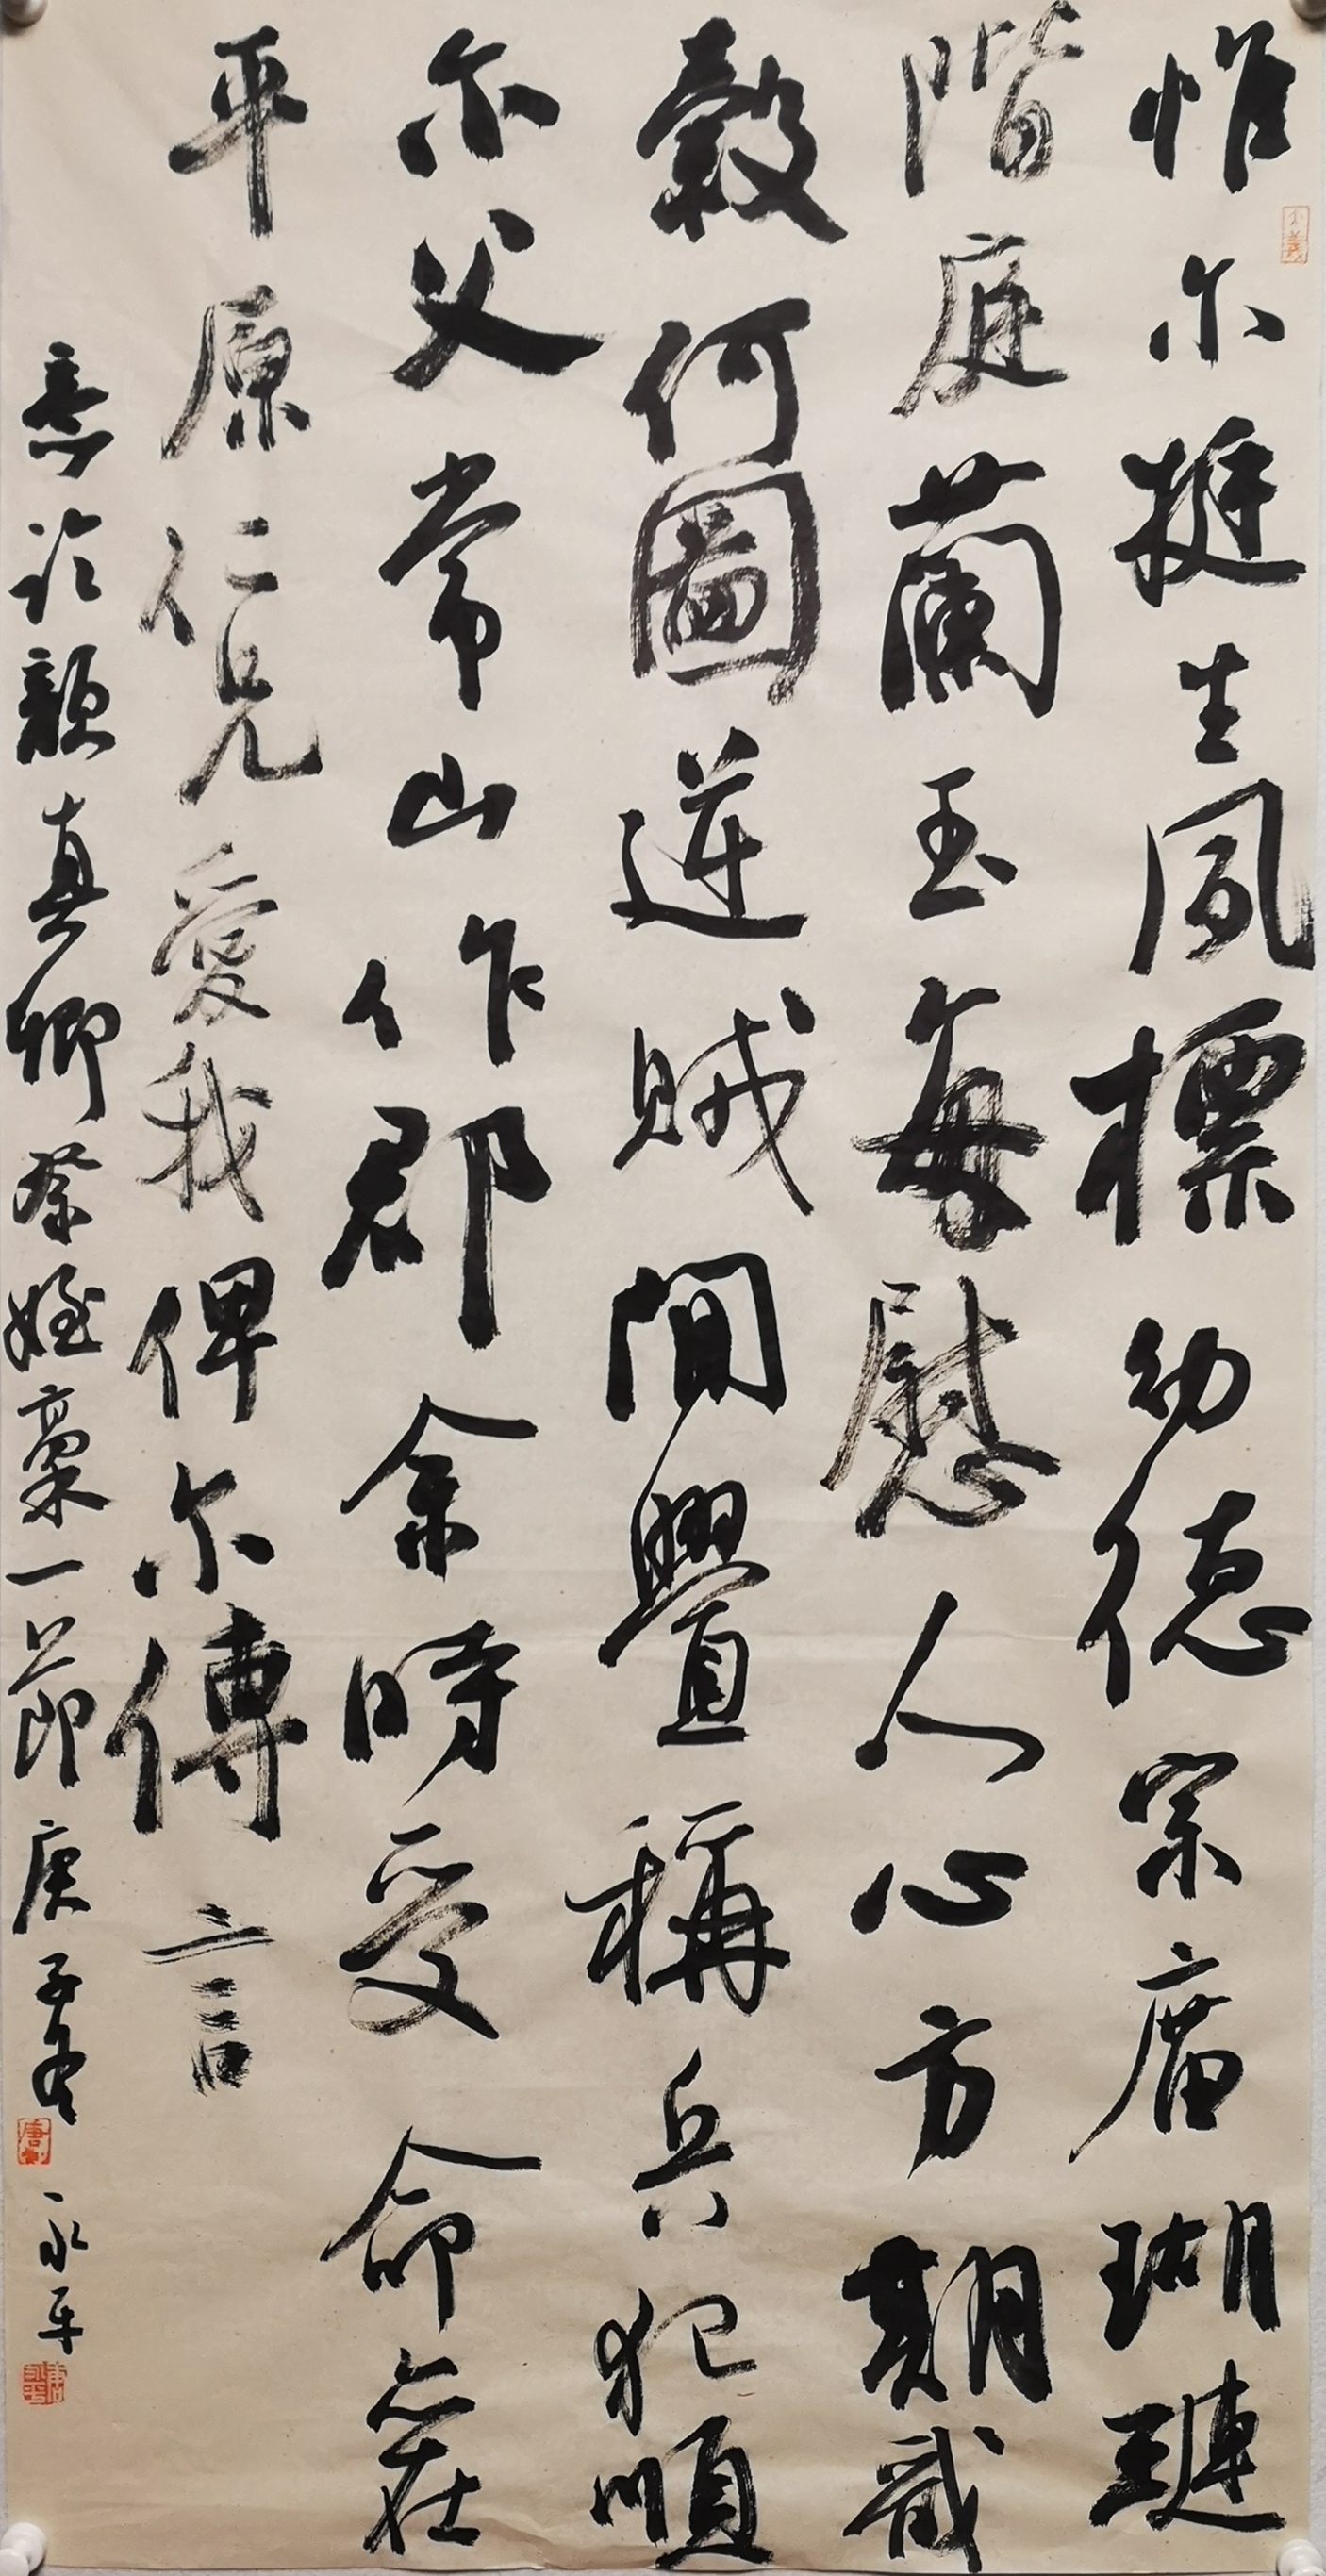 惟尔挺生夙標幼德宗廟瑚璉
階庭蘭玉每慰人心方期戩
穀何圖逆賊間舋稱兵犯順
尔父常山作郡余時受命亦在
平原仁兄愛我俾尔傳言
意臨顏真卿祭姪稾一節庚子冬
永平